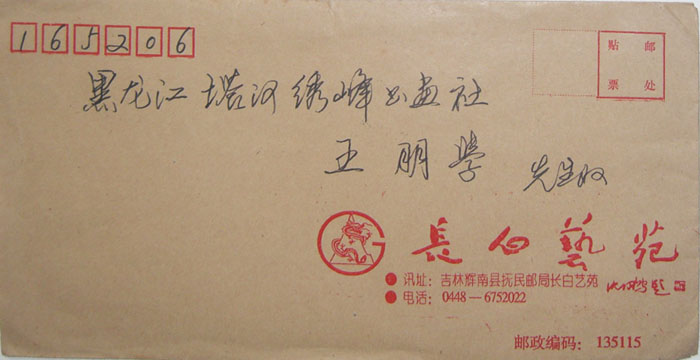 165206
贴邮
票处
黑龙江塔河绣峰书画社
王朋学 先生收
長白藝苑
讯址：吉林辉南县抚民邮局长白艺苑
电话：0448—6752022
邮政编码：135115